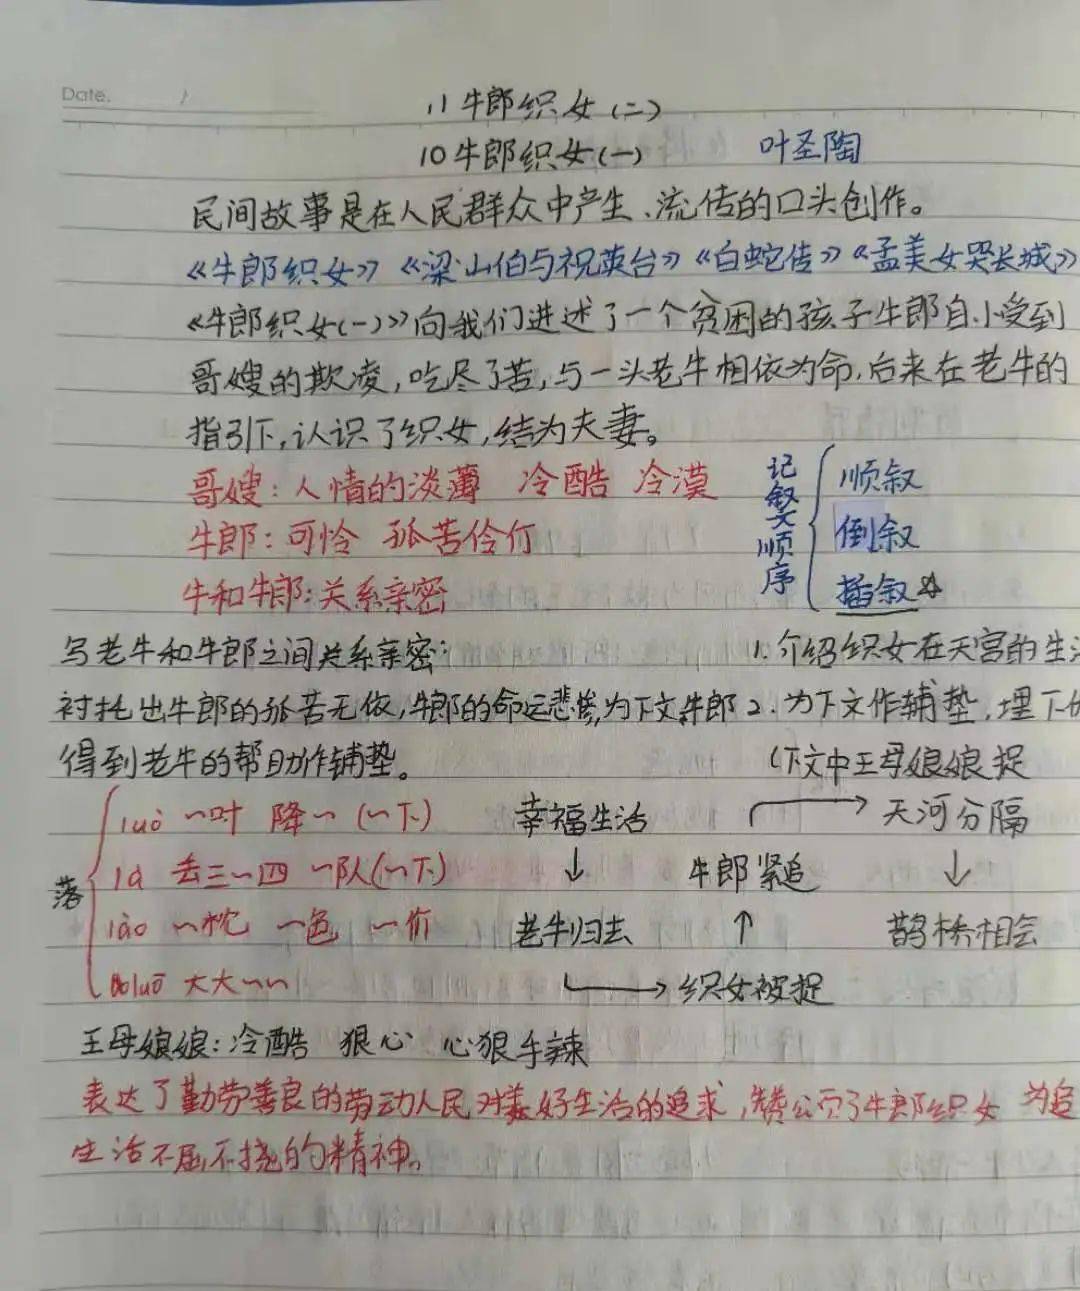 Date.
11 牛郎织女(二)
10 牛郎织女(一) 叶圣陶
民间故事是在人民群众中产生、流传的口头创作。
《牛郎织女》《梁山伯与祝英台》《白蛇传》《孟美女哭长城》
《牛郎织女(一)》向我们讲述了一个贫困的孩子牛郎自小受到
哥嫂的欺凌,吃尽了苦,与一头老牛相依为命,后来在老牛的
指引下,认识了织女,结为夫妻。
哥嫂:人情的淡薄 冷酷 冷漠
牛郎:可怜 孤苦伶仃
牛和牛郎:关系亲密
记叙文顺序
顺叙
倒叙
插叙
写老牛和牛郎之间关系亲密:
衬托出牛郎的孤苦无依,牛郎的命运悲惨,为下文牛郎
得到老牛的帮助作铺垫。
1. 介绍织女在天宫的生
2. 为下文作铺垫,埋下
(下文中王母娘娘捉
落
luò ~叶 降~ (~下)
là 丢三~四 ~队(~下)
lào ~枕 ~色 ~价
luō 大大~~
幸福生活
↓
老牛归去
→ 织女被捉
↑
牛郎紧追
→ 天河分隔
↓
鹊桥相会
王母娘娘:冷酷 狠心 心狠手辣
表达了勤劳善良的劳动人民对美好生活的追求,赞颂了牛郎织女 为追
生活不屈不挠的精神。